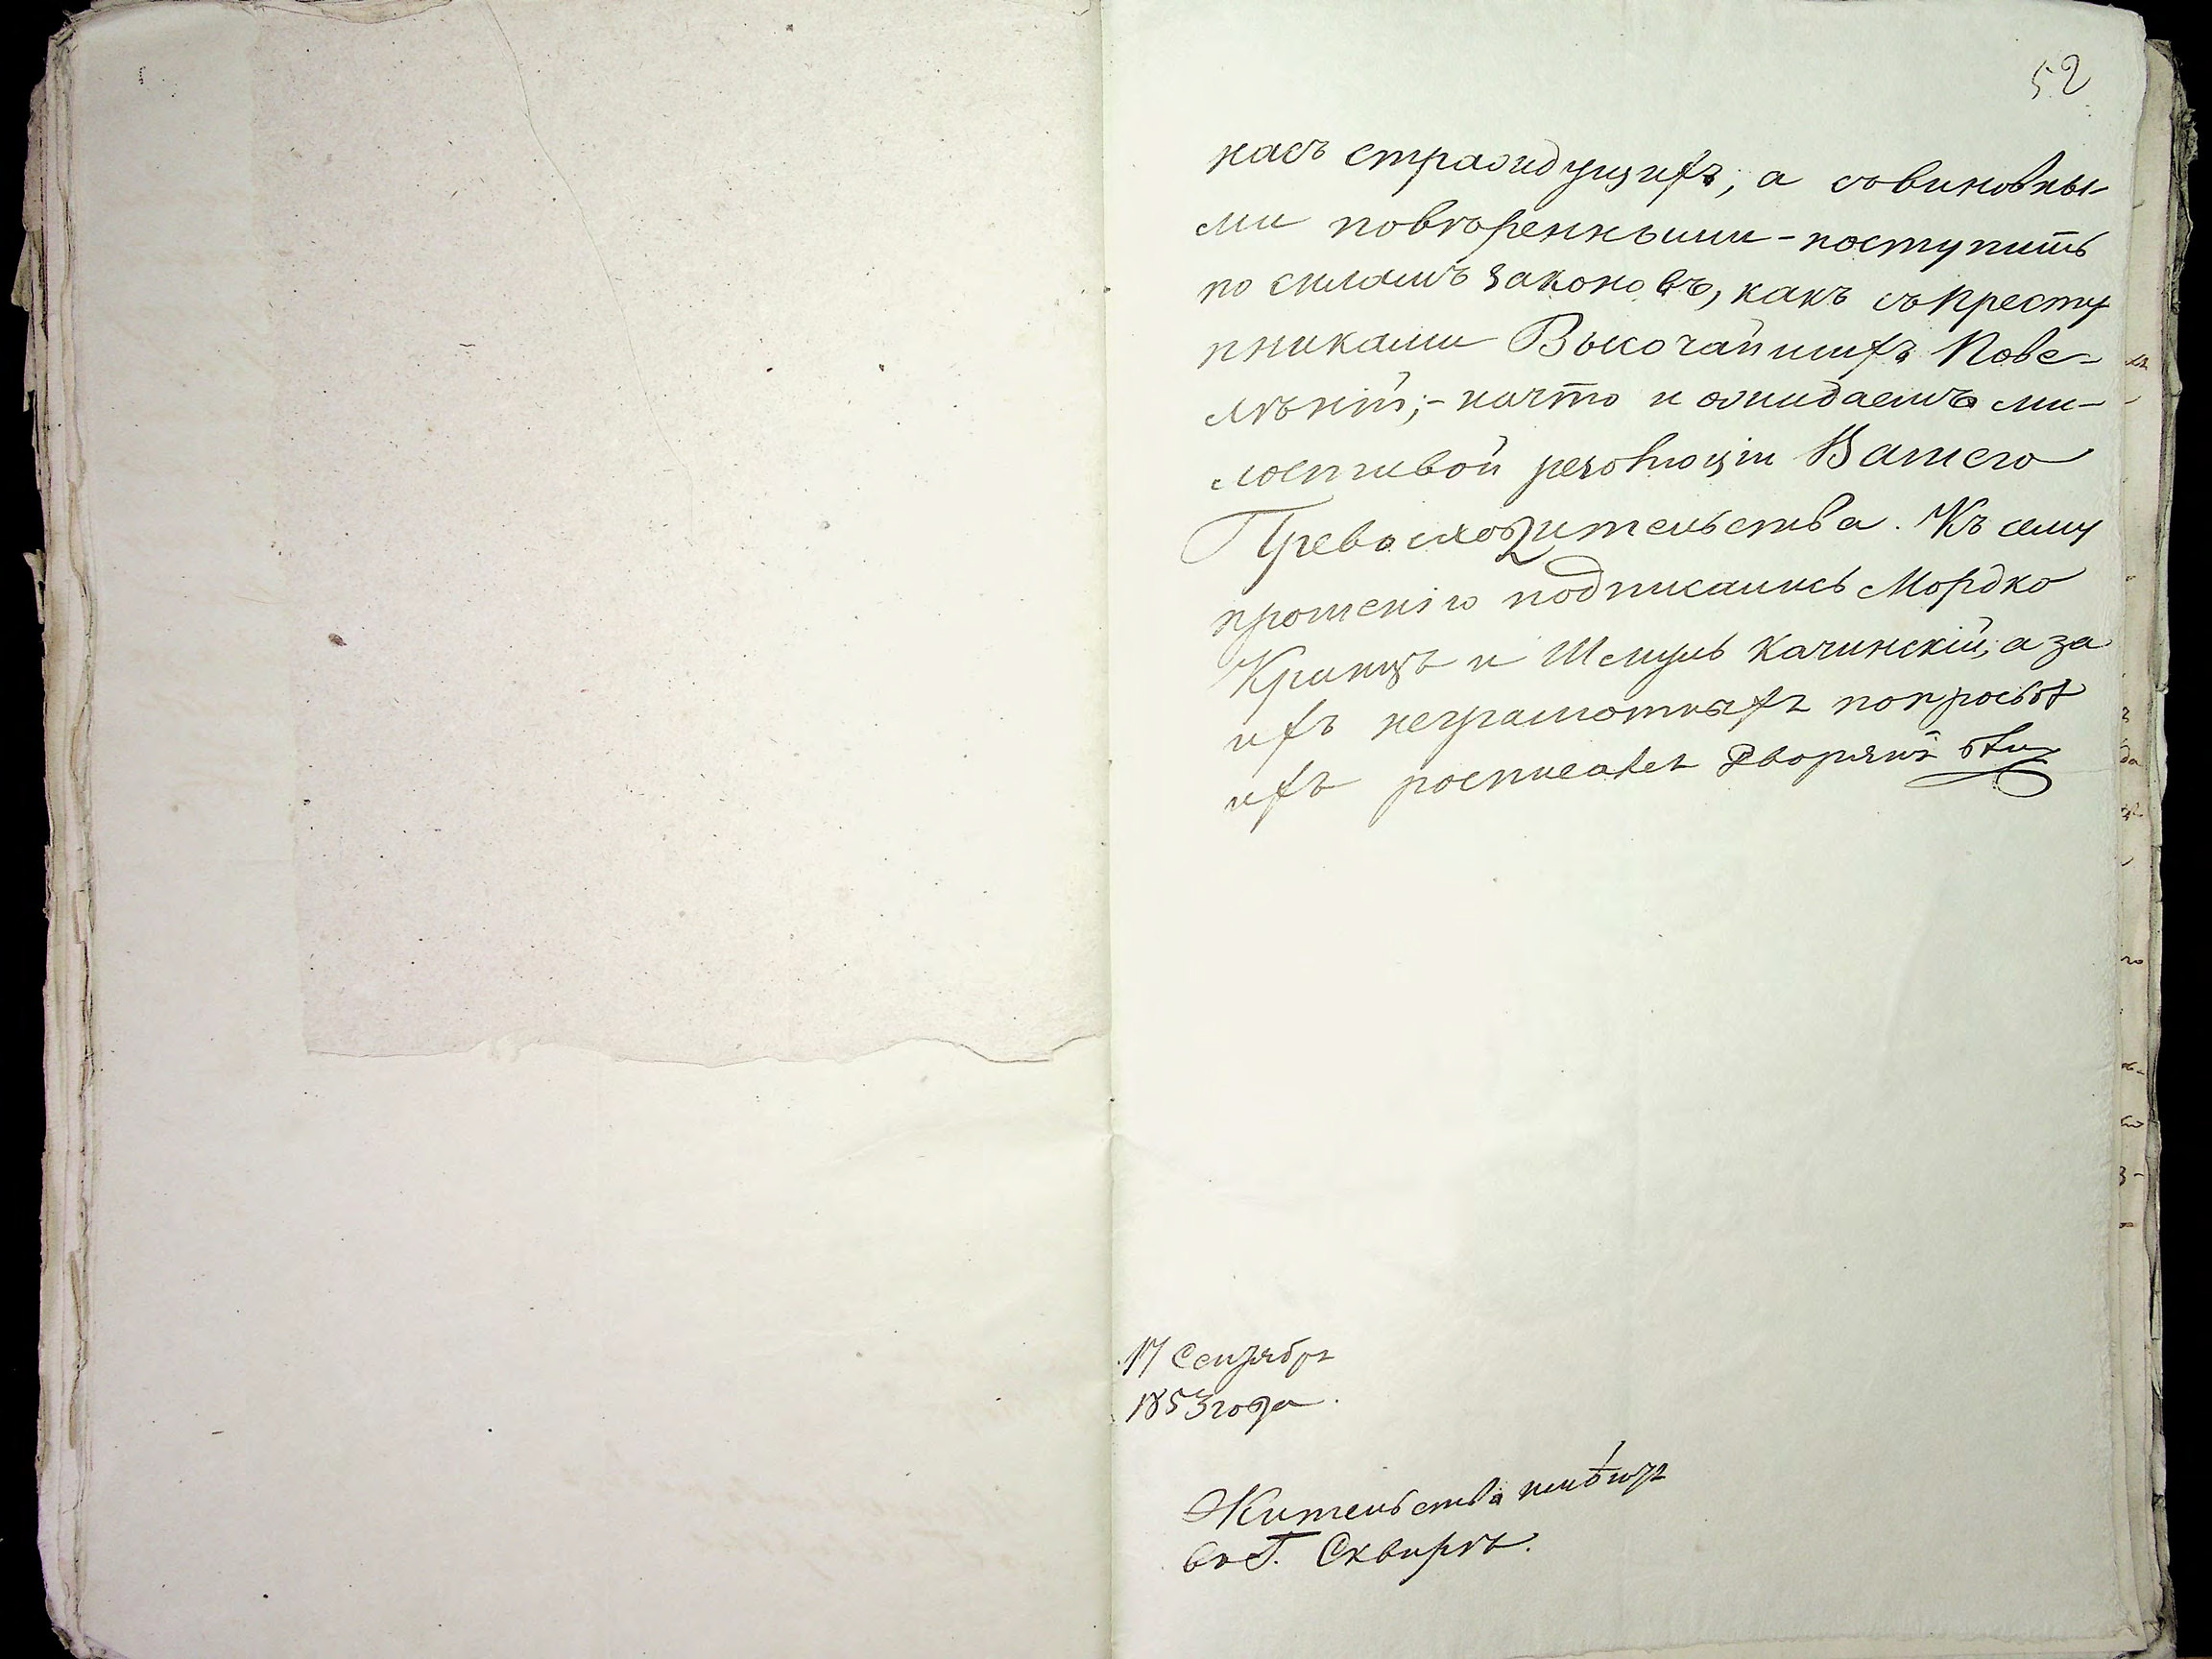 52
насъ страждущихъ, а съвиновны-
ми повѣренными - поступить
по силамъ законовъ, какъ съпресту
пниками Высочайшихъ Пове-
лѣній; - начто и ожидаемъ ми-
лостивой резолюціи Вашего
Превосходительства. Къ сему
прошенію подписались Мордко
и Шмуль Качинскій, а за
ихъ неграмотныхъ попросьбѣ
ихъ росписался Дворянинъ
17 Сентября
1853 года.
Жительство имѣютъ
въ Г. Сквирѣ.